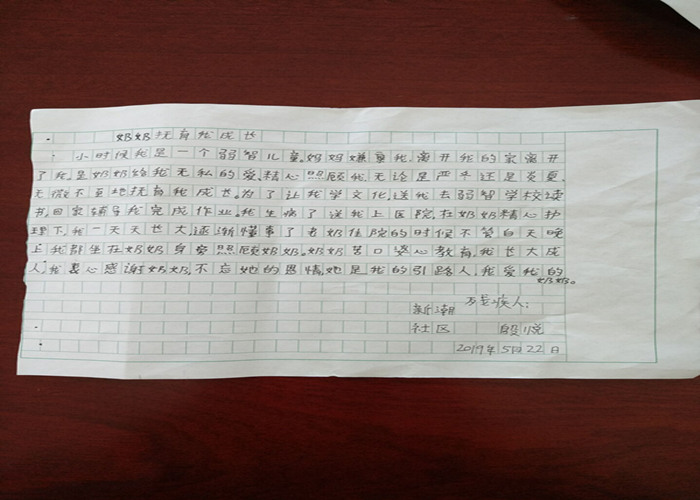 奶奶抚育我成长
小时候我是一个弱智儿童,妈妈嫌弃我,离开我的家离开
了我是奶奶给我无私的爱,精心照顾我,无论是严冬还是炎夏,
无微不至地抚育我成长。为了让我学文化,送我去弱智学校读
书,回家辅导我完成作业。我生病了送我上医院,在奶奶精心护
理下,我一天天长大逐渐懂事了,老奶住院的时候不管白天晚
上我都坐在奶奶身旁照顾奶奶。奶奶苦口婆心教育我长大成
人,我衷心感谢奶奶,不忘她的恩情,她是我的引路人,我爱我的
奶奶。
残疾人:
新潮
社区 殷悦
2019年5月22日